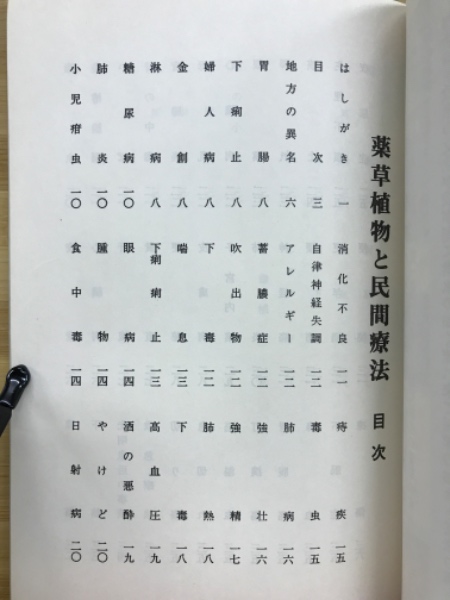 薬草植物と民間療法 目次
はしがき 一
目次 三
地方の異名 六
胃腸 八
下痢止 八
婦人病 八
金創 八
淋病 八
糖尿病 一〇
肺炎 一〇
小児疳虫 一〇
消化不良 一一
自律神経失調 一二
アレルギー 一二
蓄膿症 一二
吹出物 一二
下毒 一二
喘息 一三
下痢痢止 一三
眼病 一四
腫物 一四
食中毒 一四
痔疾 一五
毒虫 一五
肺病 一六
強壮 一六
強精 一七
肺熱 一八
下毒 一八
高血圧 一九
酒の悪酔 一九
やけど 二〇
日射病 二〇